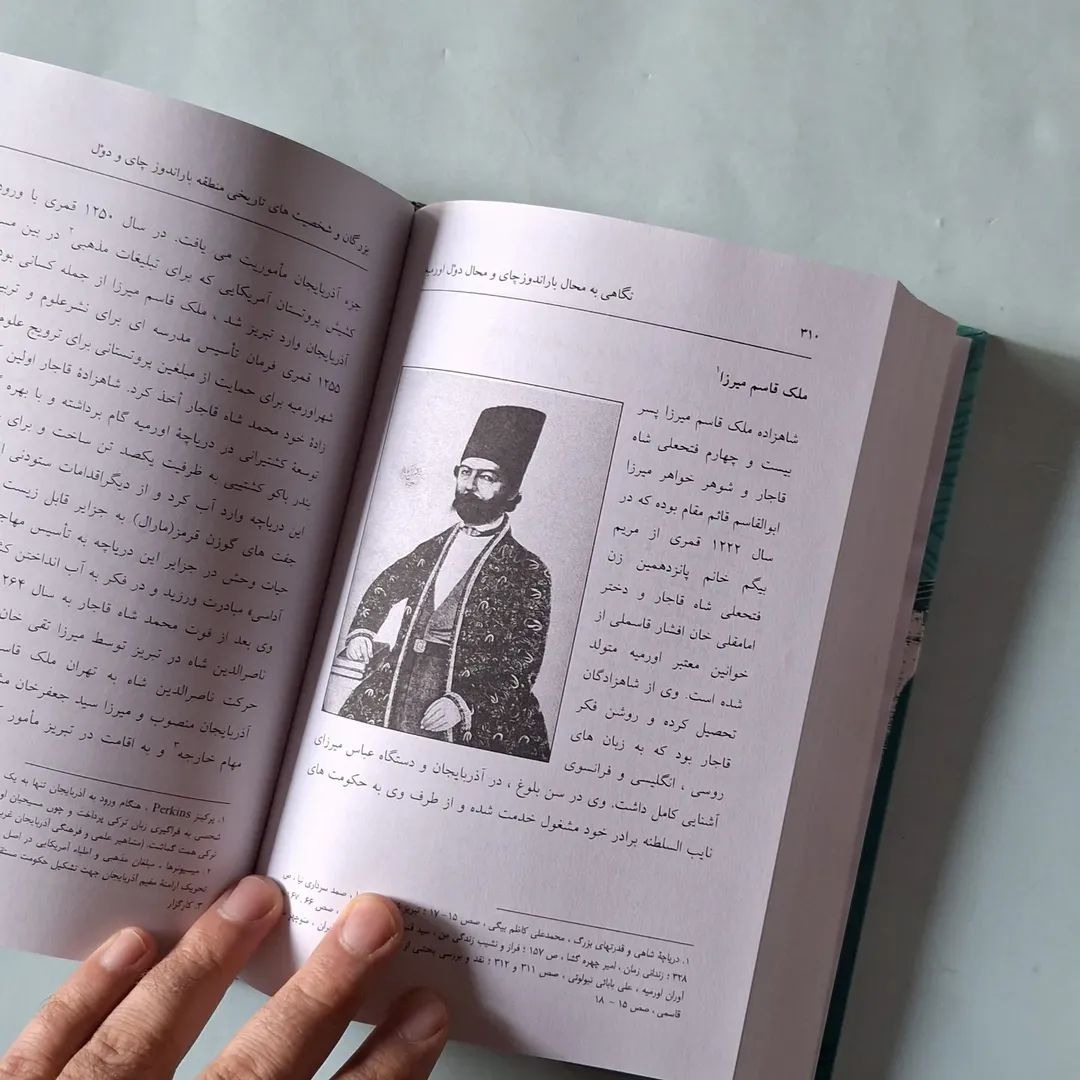 ۳۱۰
نگاهی به محال باراندوزچای و محال دوّل اورمیه
ملک قاسم میرزا۱
شاهزاده ملک قاسم میرزا پسر
بیست و چهارم فتحعلی شاه
قاجار و شوهر خواهر میرزا
ابوالقاسم قائم مقام بوده که در
سال ۱۲۲۲ قمری از مریم
بیگم خانم پانزدهمین زن
فتحعلی شاه قاجار و دختر
امامقلی خان افشار قاسملی از
خوانین معتبر اورمیه متولد
شده است. وی از شاهزادگان
تحصیل کرده و روشن فکر
قاجار بود که به زبان های
روسی ، انگلیسی و فرانسوی
آشنایی کامل داشت. وی در سن بلوغ ، در آذربایجان و دستگاه عباس میرزای
نایب السلطنه برادر خود مشغول خدمت شده و از طرف وی به حکومت های
۱. دریاچۀ شاهی و قدرتهای بزرگ ، محمدعلی کاظم بیگی ، صص ۱۵- ۱۷ ؛ تبریز ، صمد سرداری نیا ، ص
۳۲۸ ؛ زندانی زمان ، امیر چهره گشا ، ص ۱۵۷ ؛ فراز و نشیب زندگی من ، سید ، صص ۶۶ ، ۶۷
آوران اورمیه ، علی بابائی نیولوئی ، صص ۳۱۱ و ۳۱۲ ؛ نقد و بررسی بخشی از
قاسمی ، صص ۱۵ - ۱۸
بزرگان و شخصیت های تاریخی منطقه باراندوز چای و دوّل
جزء آذربایجان مأموریت می یافت. در سال ۱۲۵۰ قمری با ورود
کشیش پروتستان آمریکایی که برای تبلیغات مذهبی۲ در بین
آذربایجان وارد تبریز شد ، ملک قاسم میرزا از جمله کسانی بود
۱۲۵۵ قمری فرمان تأسیس مدرسه ای برای نشرعلوم و
شهراورمیه برای حمایت از مبلغین پروتستانی برای ترویج علوم
زادۀ خود محمد شاه قاجار أخذ کرد. شاهزادۀ قاجار اولین
توسعۀ کشتیرانی در دریاچۀ اورمیه گام برداشته و با بهره
بندر باکو کشتیی به ظرفیت یکصد تن ساخت و برای
این دریاچه وارد آب کرد و از دیگراقدامات ستودنی
جفت های گوزن قرمز(مارال) به جزایر قابل زیست
حیات وحش در جزایر این دریاچه به تأسیس
آداسی» مبادرت ورزید و در فکر به آب انداختن
وی بعد از فوت محمد شاه قاجار به سال ۱۲۶۴
ناصرالدین شاه در تبریز توسط میرزا تقی خان
حرکت ناصرالدین شاه به تهران ملک قاسم
آذربایجان منصوب و میرزا سید جعفرخان
مهام خارجه۳ و به اقامت در تبریز مأمور
۱. پرکینز Perkins ، هنگام ورود به آذربایجان تنها به یک
شخصی به فراگیری زبان ترکی پرداخت و چون مسیحیان
ترکی همت گماشت. (مشاهیر علمی و فرهنگی آذربایجان
۲. میسیونرها ، مبلغان مذهبی و اطباء آمریکایی در اصل
تحریک ارامنۀ مقیم آذربایجان جهت تشکیل حکومت
۳. کارگزار